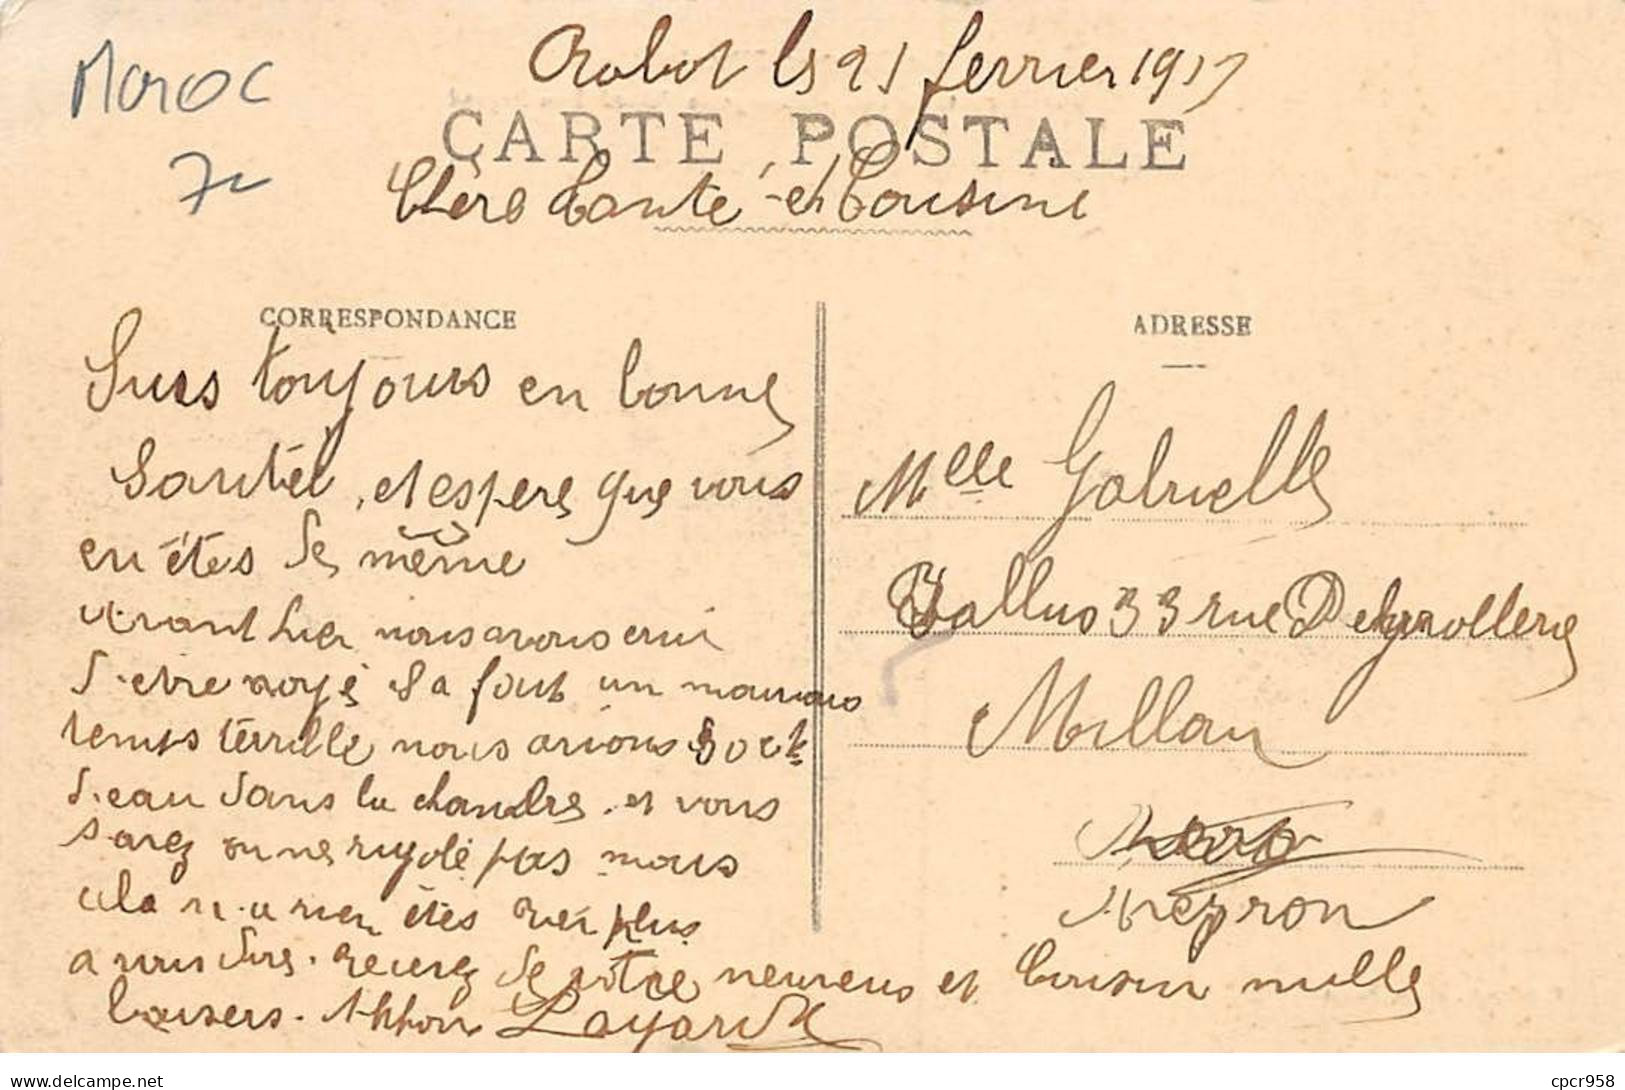 Maroc
72
Rabat le 21 fevrier 1917
CARTE POSTALE
Chère Tante et Cousine
CORRESPONDANCE
Suis toujours en bonne
Santée, et espere que vous
en êtes de même
Avant hier nous avons crui
d'etre noyé Sa fout un mauvais
temps terrille nous avions 30 c
d'eau dans la chandre et vous
savez on ne rigolé pas mous
cela n'a rien êtes rien plus
a vous dire. Recevez de votre neuveus et Cousin mille
baisers. Layar
ADRESSE
Melle Gabrielle
Tallus 33 rue Peyrollerie
Millau
Aveyron
delcampe.net
cpcr958